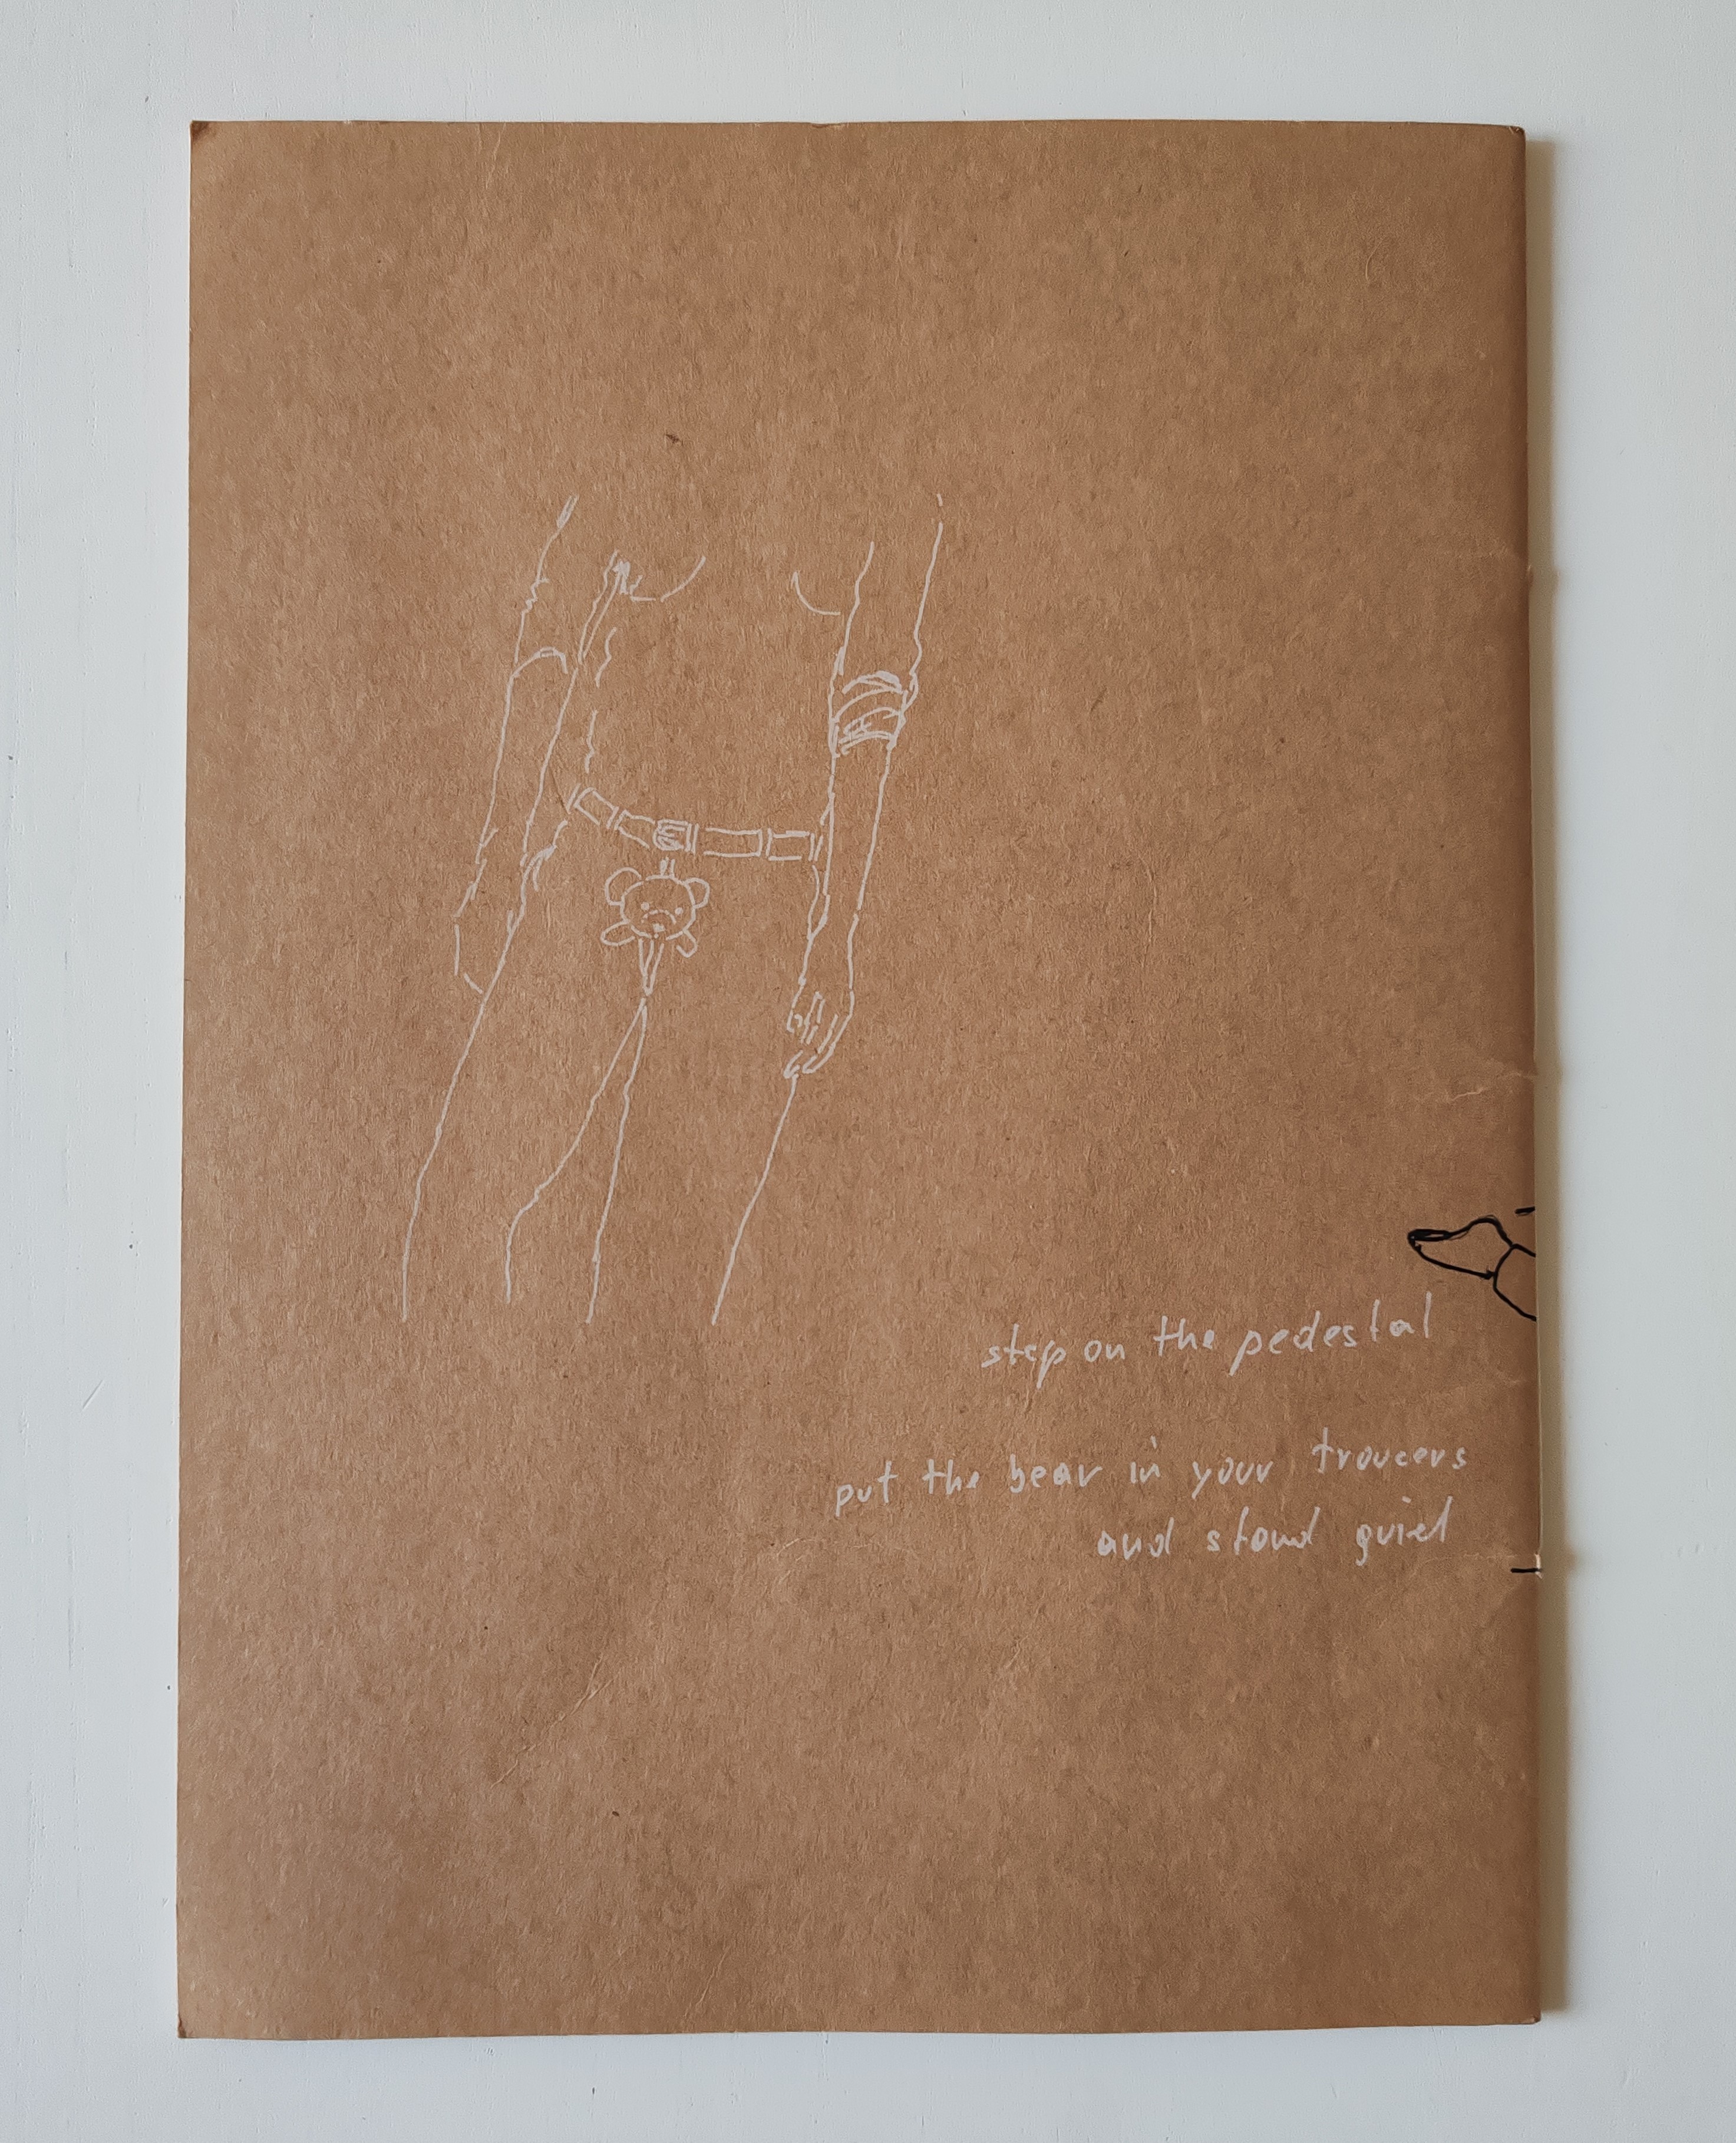 step on the pedestal
put the bear in your troucers
and stand quiet